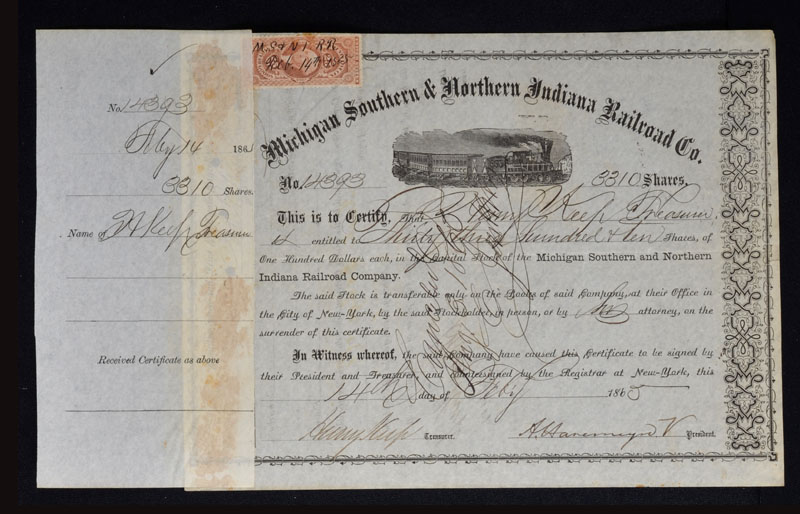 No. 14393
Feby 14 1865
3310 Shares.
Name of H Keep Treasurer
Received Certificate as above
M.S & N I RR
Feb. 14th 1865
Michigan Southern & Northern Indiana Railroad Co.
No. 14393 3310 Shares.
This is to Certify, That Henry Keep Treasurer
is entitled to Thirty three hundred & ten Shares, of
One Hundred Dollars each, in the Capital Stock of the Michigan Southern and Northern
Indiana Railroad Company.
The said Stock is transferable only on the Books of said Company, at their Office in
the City of New-York, by the said Stockholder, in person, or by his attorney, on the
surrender of this certificate.
In Witness whereof, the said Company have caused this Certificate to be signed by
their President and Treasurer, and countersigned by the Registrar at New-York, this
14th day of Feby 1865
Henry Keep Treasurer. A. Havemeyer V President.
Cancelled